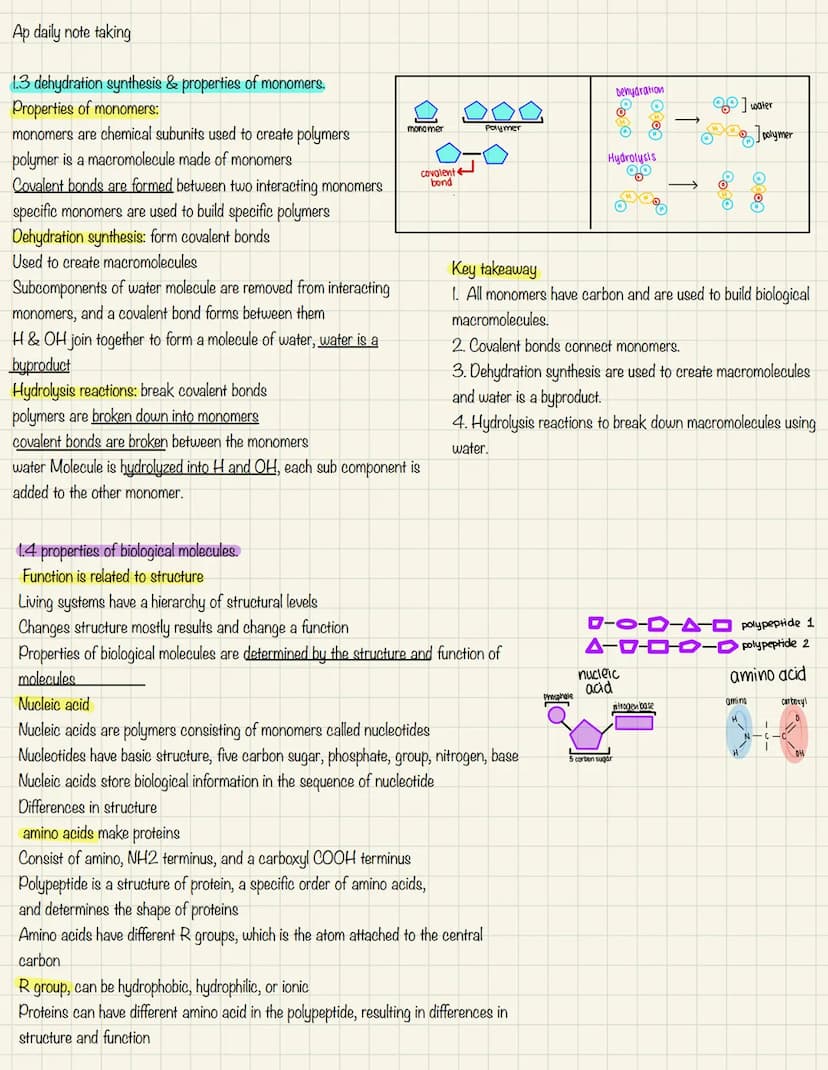 Ap daily note taking
1.3 dehydration synthesis & properties of monomers.
Properties of monomers:
monomers are chemical subunits used to create polymers
polymer is a macromolecule made of monomers
Covalent bonds are formed between two interacting monomers
specific monomers are used to build specific polymers
Dehydration synthesis: form covalent bonds
Used to create macromolecules
Subcomponents of water molecule are removed from interacting
monomers, and a covalent bond forms between them
H & OH join together to form a molecule of water, water is a
byproduct
Hydrolysis reactions: break covalent bonds
polymers are broken down into monomers
covalent bonds are broken between the monomers
water Molecule is hydrolyzed into H and OH, each sub component is
added to the other monomer.
monomer
Polymer
covalent
bond
Dehydration
water
polymer
Hydrolysis
Key takeaway
1. All monomers have carbon and are used to build biological
macromolecules.
2. Covalent bonds connect monomers.
3. Dehydration synthesis are used to create macromolecules
and water is a byproduct.
4. Hydrolysis reactions to break down macromolecules using
water.
1.4 properties of biological molecules.
Function is related to structure
Living systems have a hierarchy of structural levels
Changes structure mostly results and change a function
Properties of biological molecules are determined by the structure and function of
molecules
Nucleic acid
Nucleic acids are polymers consisting of monomers called nucleotides
Nucleotides have basic structure, five carbon sugar, phosphate, group, nitrogen, base
Nucleic acids store biological information in the sequence of nucleotide
Differences in structure
amino acids make proteins
Consist of amino, NH2 terminus, and a carboxyl COOH terminus
Polypeptide is a structure of protein, a specific order of amino acids,
and determines the shape of proteins
Amino acids have different R groups, which is the atom attached to the central
carbon
R group, can be hydrophobic, hydrophilic, or ionic
Proteins can have different amino acid in the polypeptide, resulting in differences in
structure and function
polypeptide 1
polypeptide 2
nucleic
acid
Phosphate
nitrogen base
5 carbon sugar
amino acid
amino
carboxyl
H
N
H
C
C
O
OH